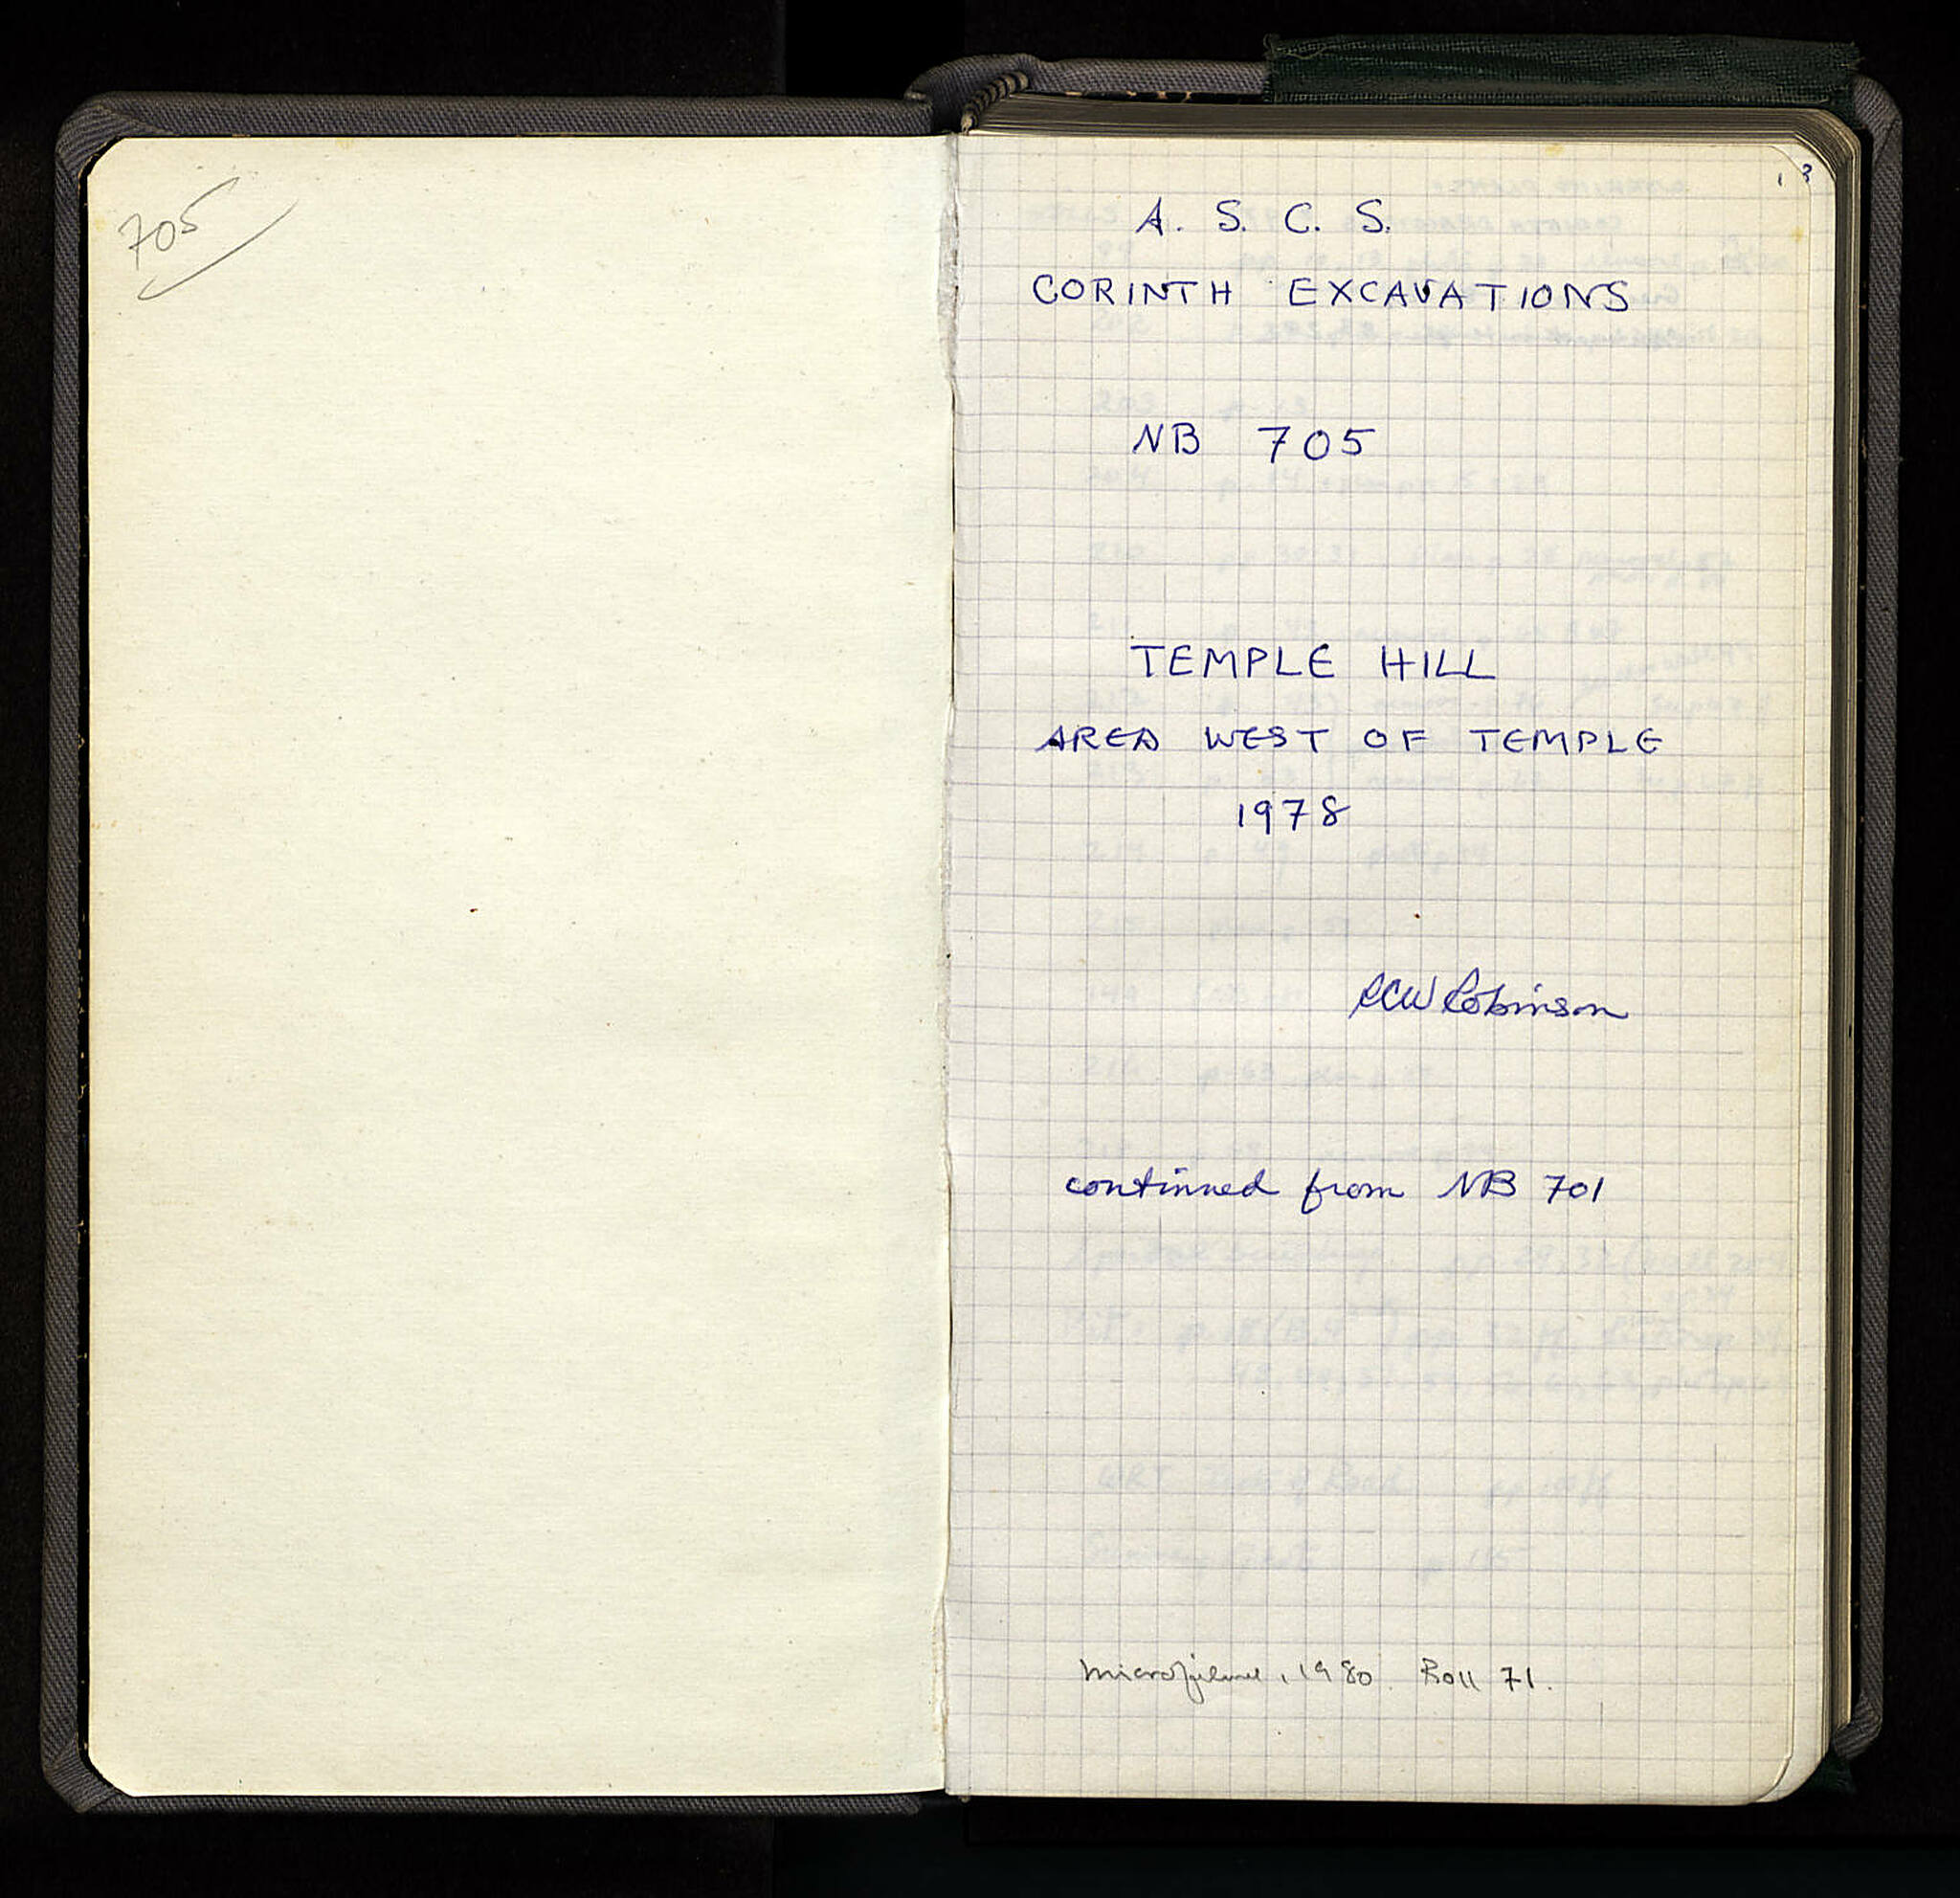 705
A. S. C. S.
CORINTH EXCAVATIONS
NB 705
TEMPLE HILL
AREA WEST OF TEMPLE
1978
Robinson
continued from NB 701
Microfilmed, 1980. Roll 71.